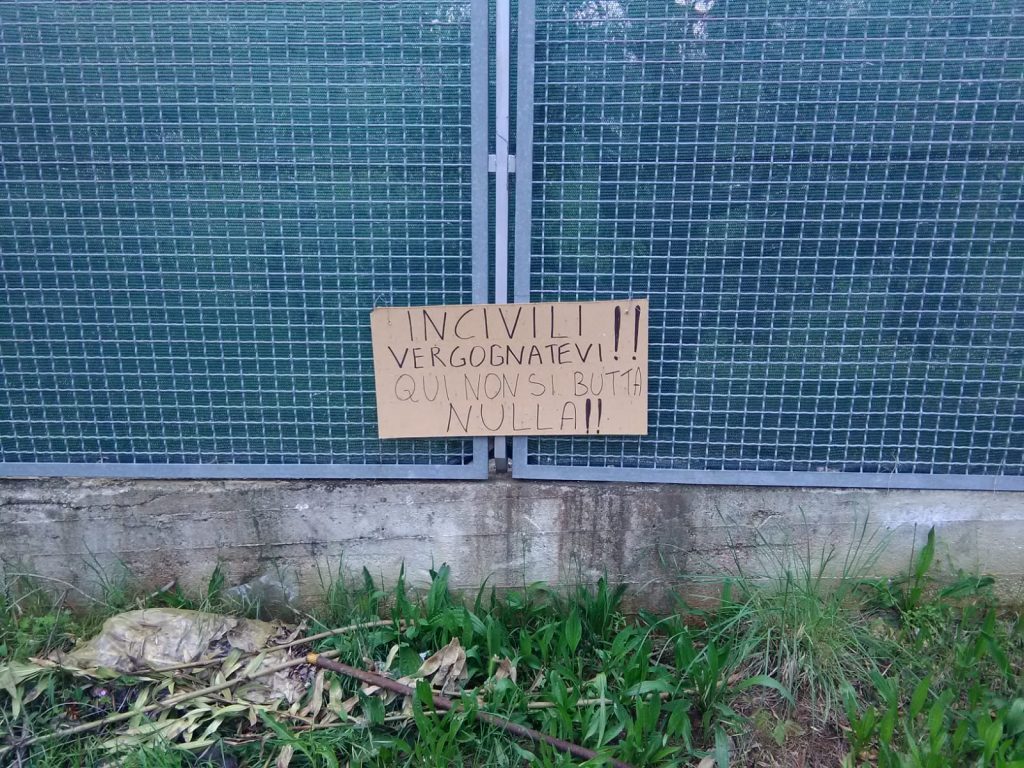 INCIVILI !!
VERGOGNATEVI
QUI NON SI BUTTA
NULLA!!